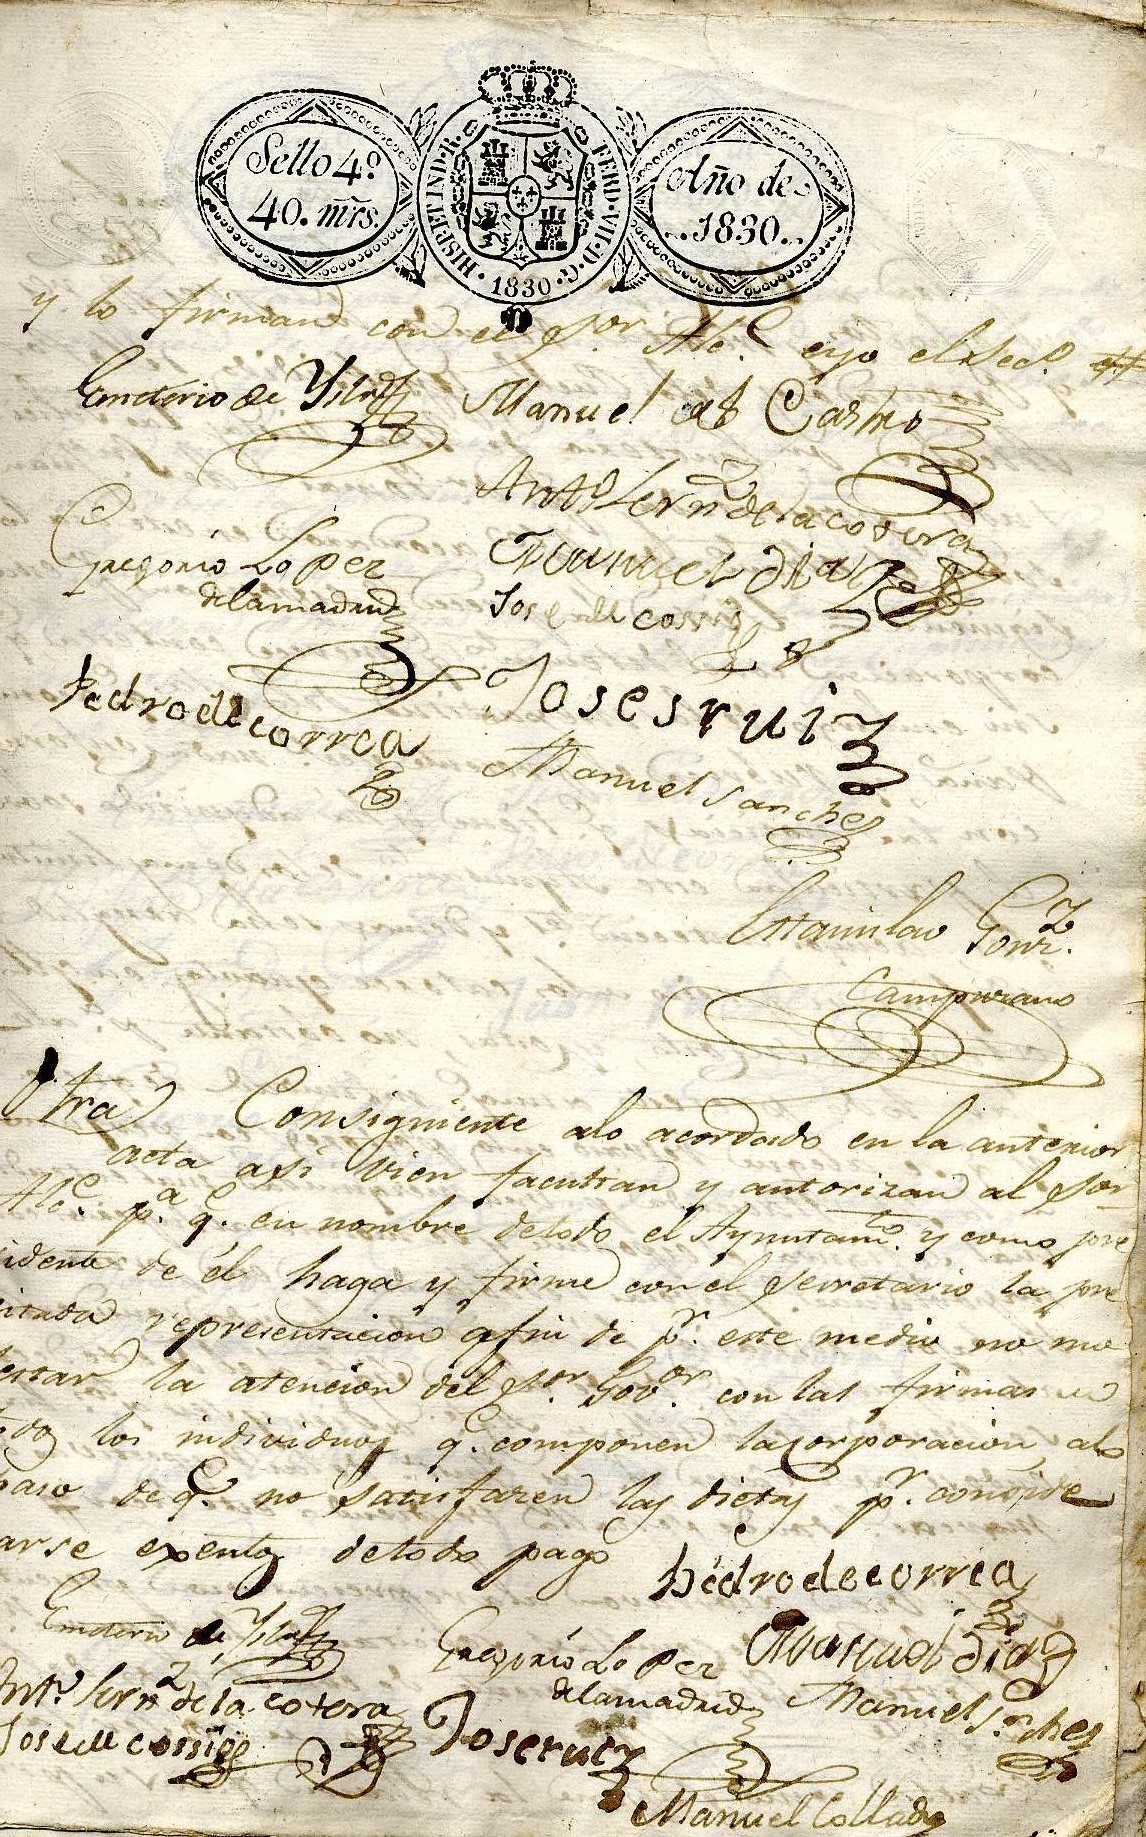 Sello 4º
40. mrs.
HISPET IND. R.
FERD. VII. D. G.
1830
Año de
1830.
y lo firman con el Sor. Alce. e yo el Secº.
Emeterio de Ysla
Manuel de Castro
Antº. Fernz de la cotera
Gregorio Lopez
delamadrid
Manuel diaz
Jose de cossio
Pedro de correa
Joses ruiz
Manuel Sanchez
Estanislao Gonz.
Campuzano
Otra
Consiguiente alo acordado en la anterior
acta asi vien facultan y autorizan al Sor
Alce. pa. q. en nombre detodo el Ayuntamto. y como pre
sidente de él haga y firme con el Secretario la pre
citada representacion afin de pr. este medio no mo
lestar la atencion del Sor. Govor. con las firmas
todos los individuos q. componen la corporacion, alo
paso de q. no satisfacen las dietas pr. conside
rarse exentos detodo pago
Pedro de correa
Emeterio de Ysla
Gregorio Lopez
delamadrid
Manuel diaz
Antº. Fernz de la cotera
Manuel Snchez
Jose de cossio
Jose ruiz
Manuel Collado